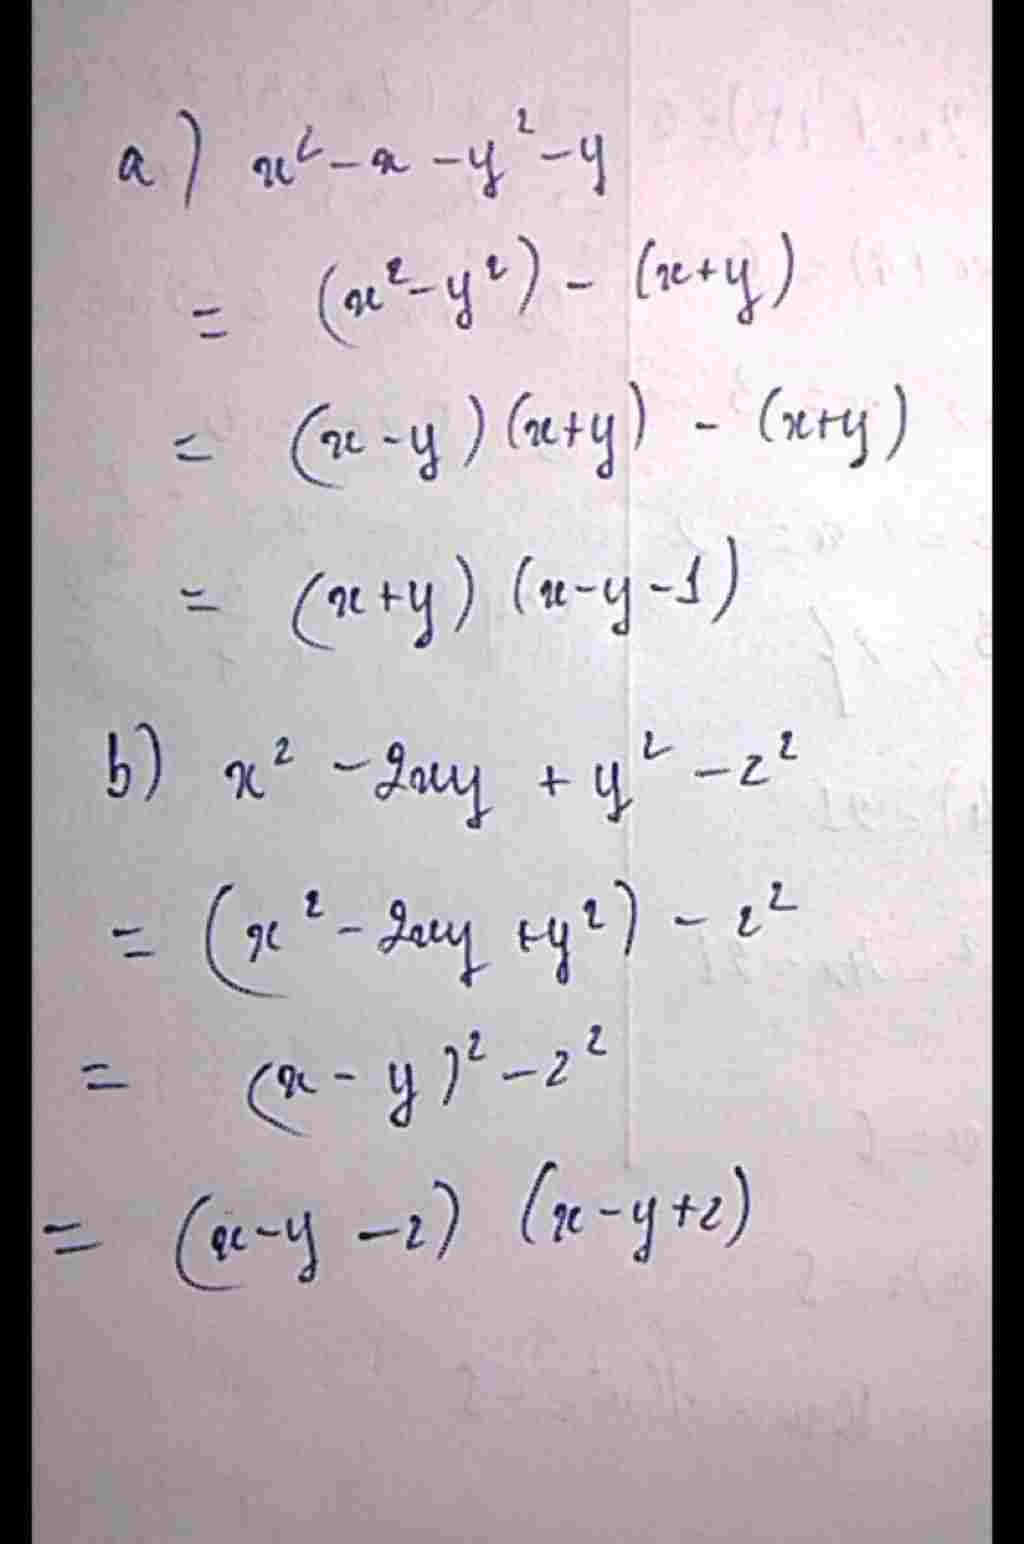 a) x² - x - y² - y
= (x² - y²) - (x+y)
= (x - y) (x+y) - (x+y)
= (x+y) (x-y-1)
b) x² - 2xy + y² - z²
= (x² - 2xy + y²) - z²
= (x - y)² - z²
= (x-y - z) (x-y+z)